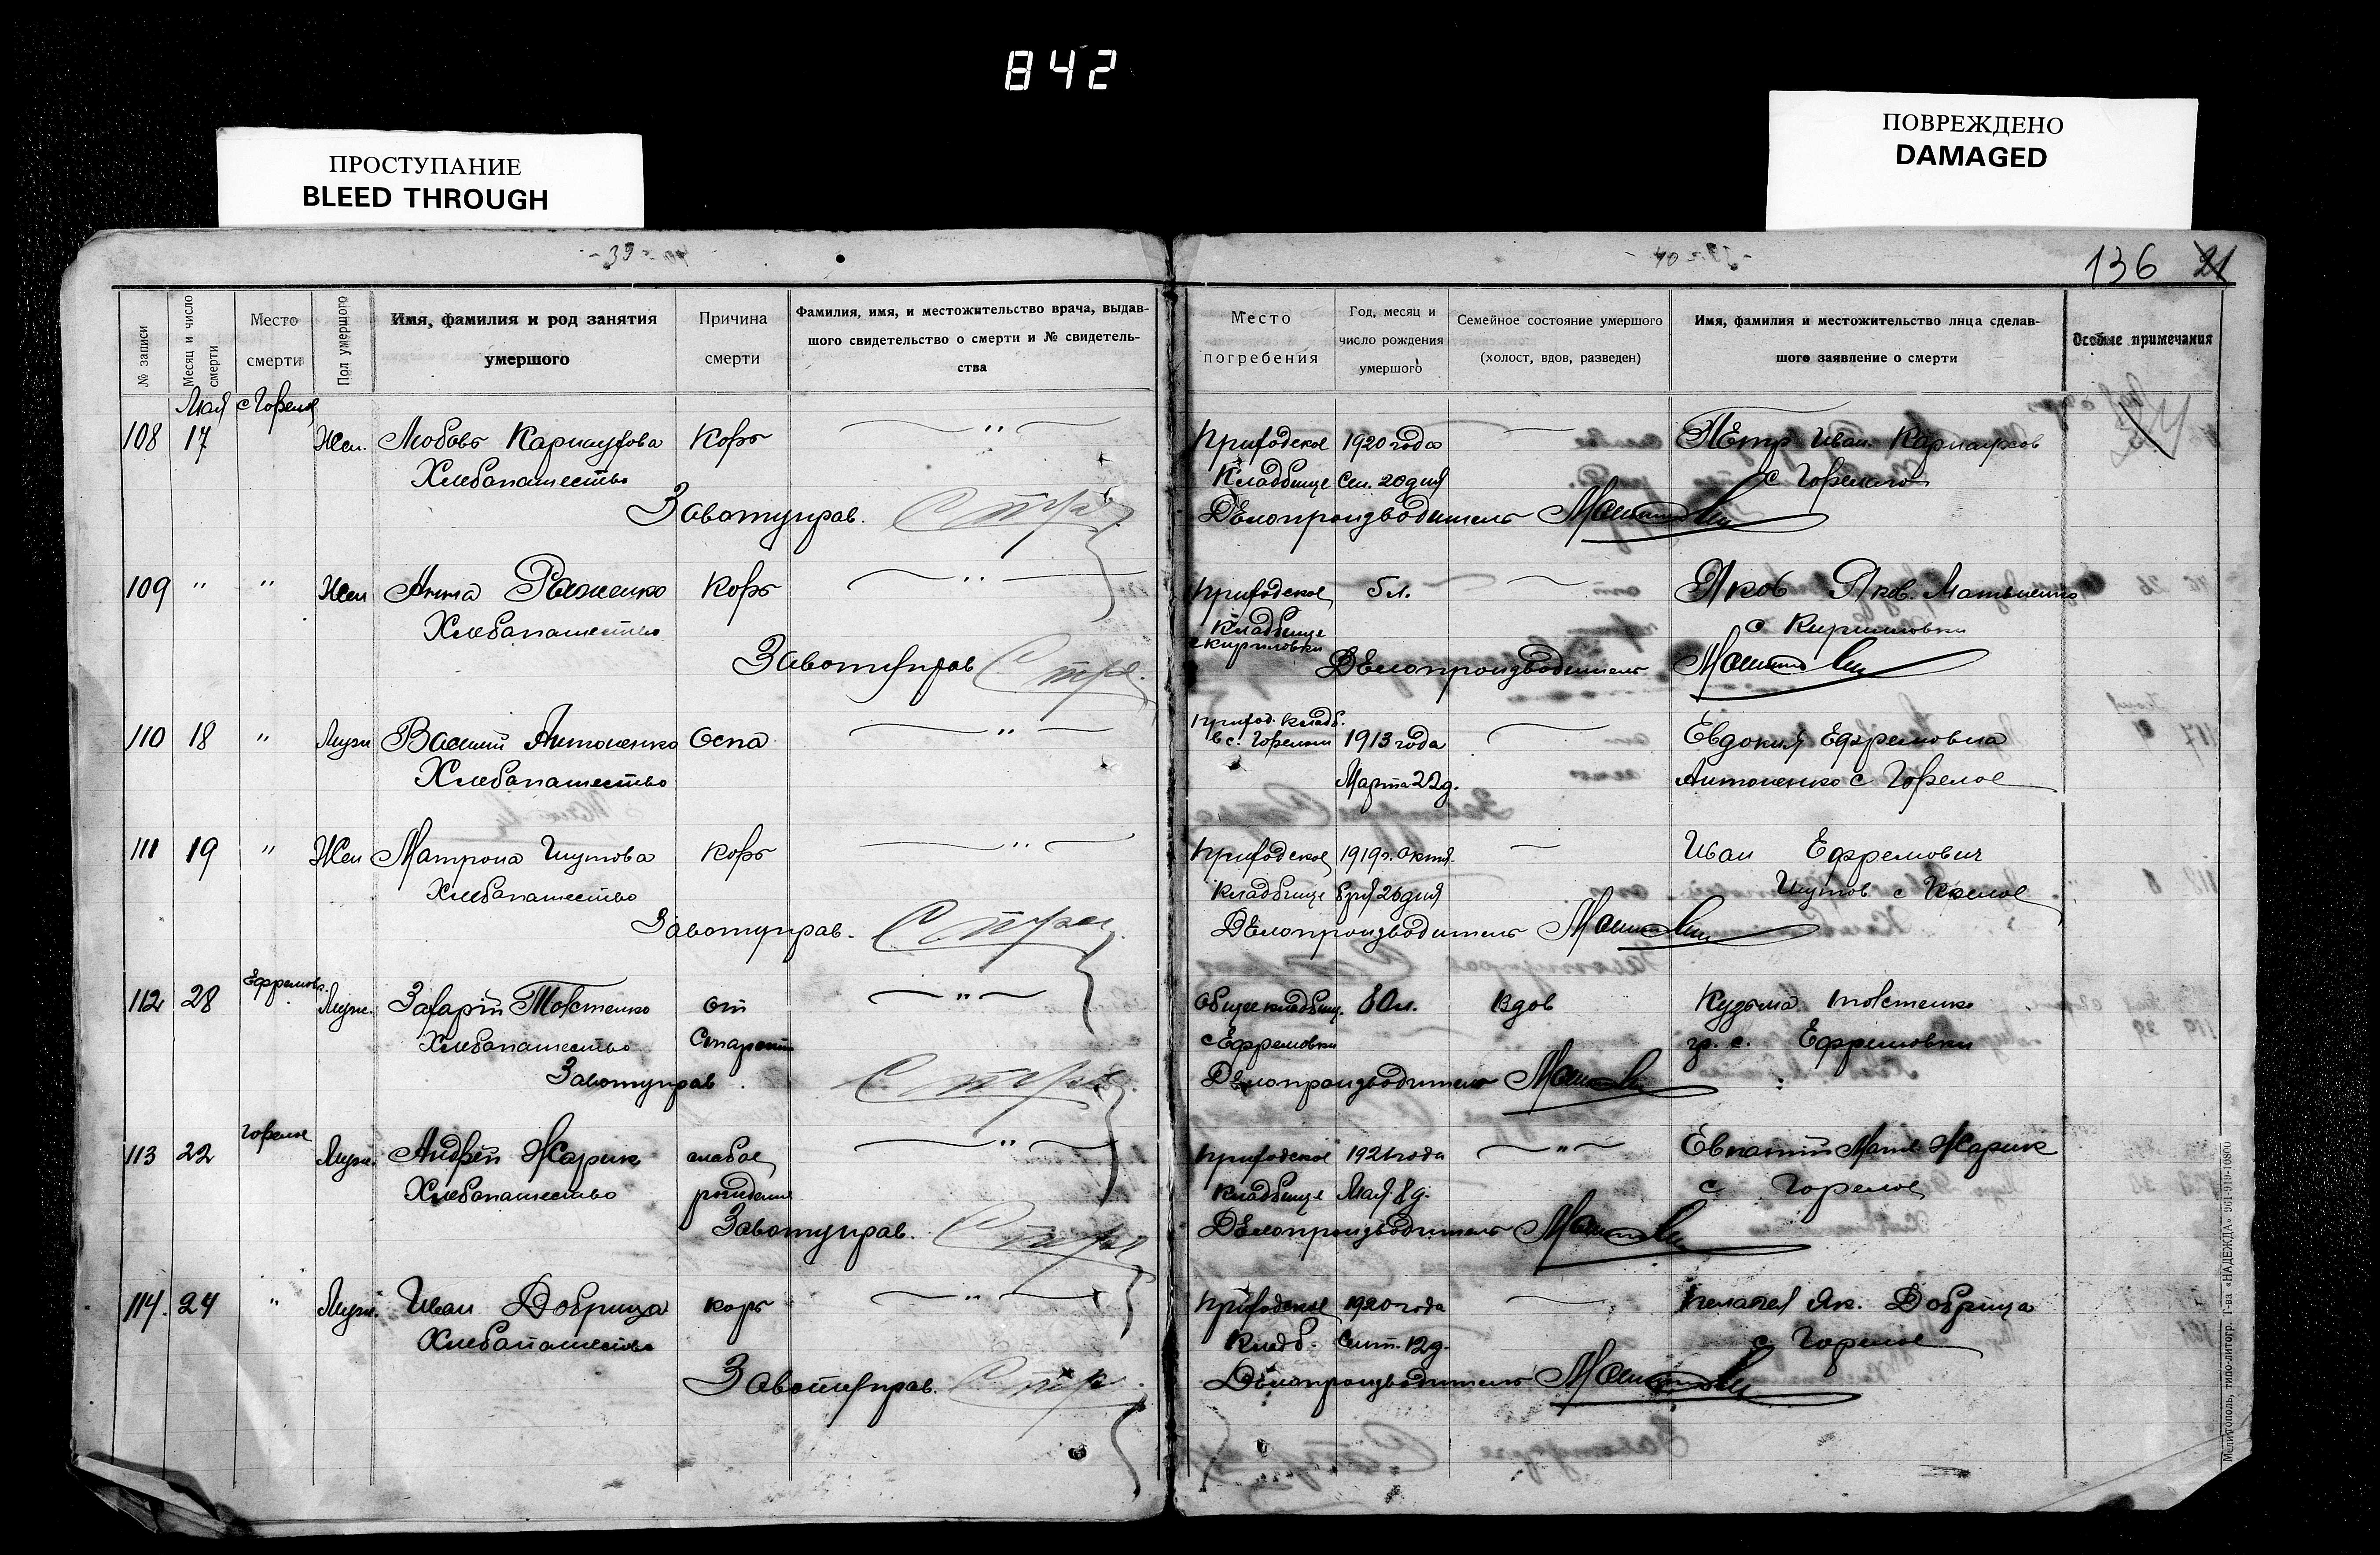 842
ПРОСТУПАНИЕ
BLEED THROUGH
ПОВРЕЖДЕНО
DAMAGED
- 39 -
136 21
№ записи
Месяц и число смерти
Место смерти
Пол умершого
Имя, фамилия и род занятия умершого
Причина смерти
Фамилия, имя, и местожительство врача, выдавшого свидетельство о смерти и № свидетельства
Место погребения
Год, месяц и число рождения умершого
Семейное состояние умершого (холост, вдов, разведен)
Имя, фамилия и местожительство лица сделавшого заявление о смерти
Особые примечания
Мая с Горелое
108 17 Жен. Любовь Карнаухова Корь — " — Приходское 1920 года — Пётр Иван. Карнаухов
Хлебопашество Кладбище Сен. 20 дня с Горелого
Завотуправ. Делопроизводитель
109 " " Жен Анна Корь — " — Приходское 5 л. — Яков Яков.
Хлебопашество Кладбище с Кирилловки
с Кириловки
Завотуправ Делопроизводитель
110 18 " Муж Василий Антоненко Оспа — " — Приход. кладб. в с. Горелом 1913 года — Евдокия Ефремовна
Хлебопашество Марта 22 д. Антоненко с Горелое
111 19 " Жен Матрона Шутова Корь — " — Приходское 1919 г. Октя- — Иван Ефремович
Хлебопашество кладбище бря 20 дня Шутов с Горелое
Завотуправ. Делопроизводитель
Ефремовк.
112 28 Муж. Захарій Товстенко от — " — Общее кладбищ. 80 л. Вдов Кузьма Товстенко
Хлебопашество Старости с Ефремовки гр. с. Ефремовки
Завотуправ Делопроизводитель
Горелое
113 22 Муж. Андрей Жарик слабое — " — Приходское 1921 года — " — Жарик
Хлебопашество рождение Кладбище Мая 8 д. с Горелое
Завотуправ. Делопроизводитель
114. 24 " Муж. Иван Добрица корь — " — Приходское 1920 года — Пелагея Як. Добрица
Хлебопашество Кладб. Сент. 12 д. с Горелое
Завотуправ. Делопроизводитель
Мелитополь, типо-литогр. Т-ва «НАДЕЖДА» 961-919-10800